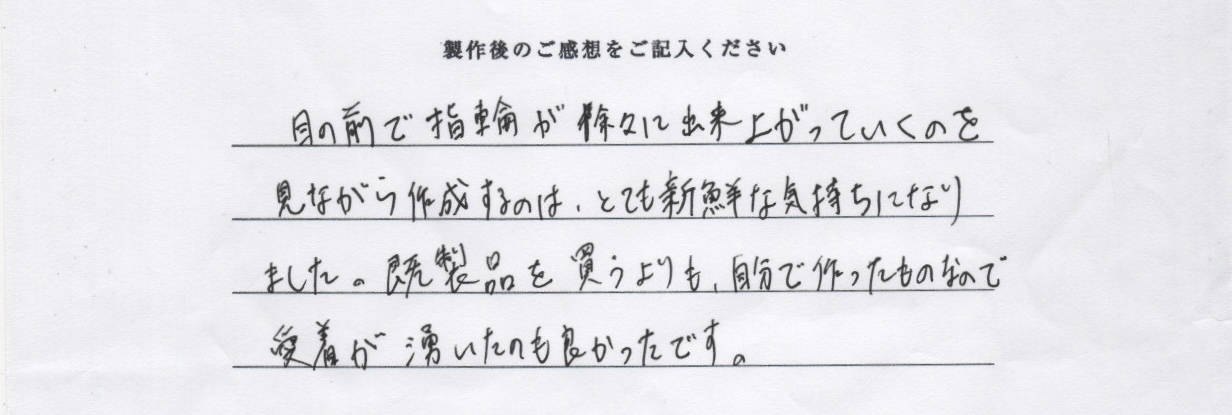 製作後のご感想をご記入ください
目の前で指輪が徐々に出来上がっていくのを
見ながら作成するのは、とても新鮮な気持ちになり
ました。既製品を買うよりも、自分で作ったものなので
愛着が湧いたのも良かったです。